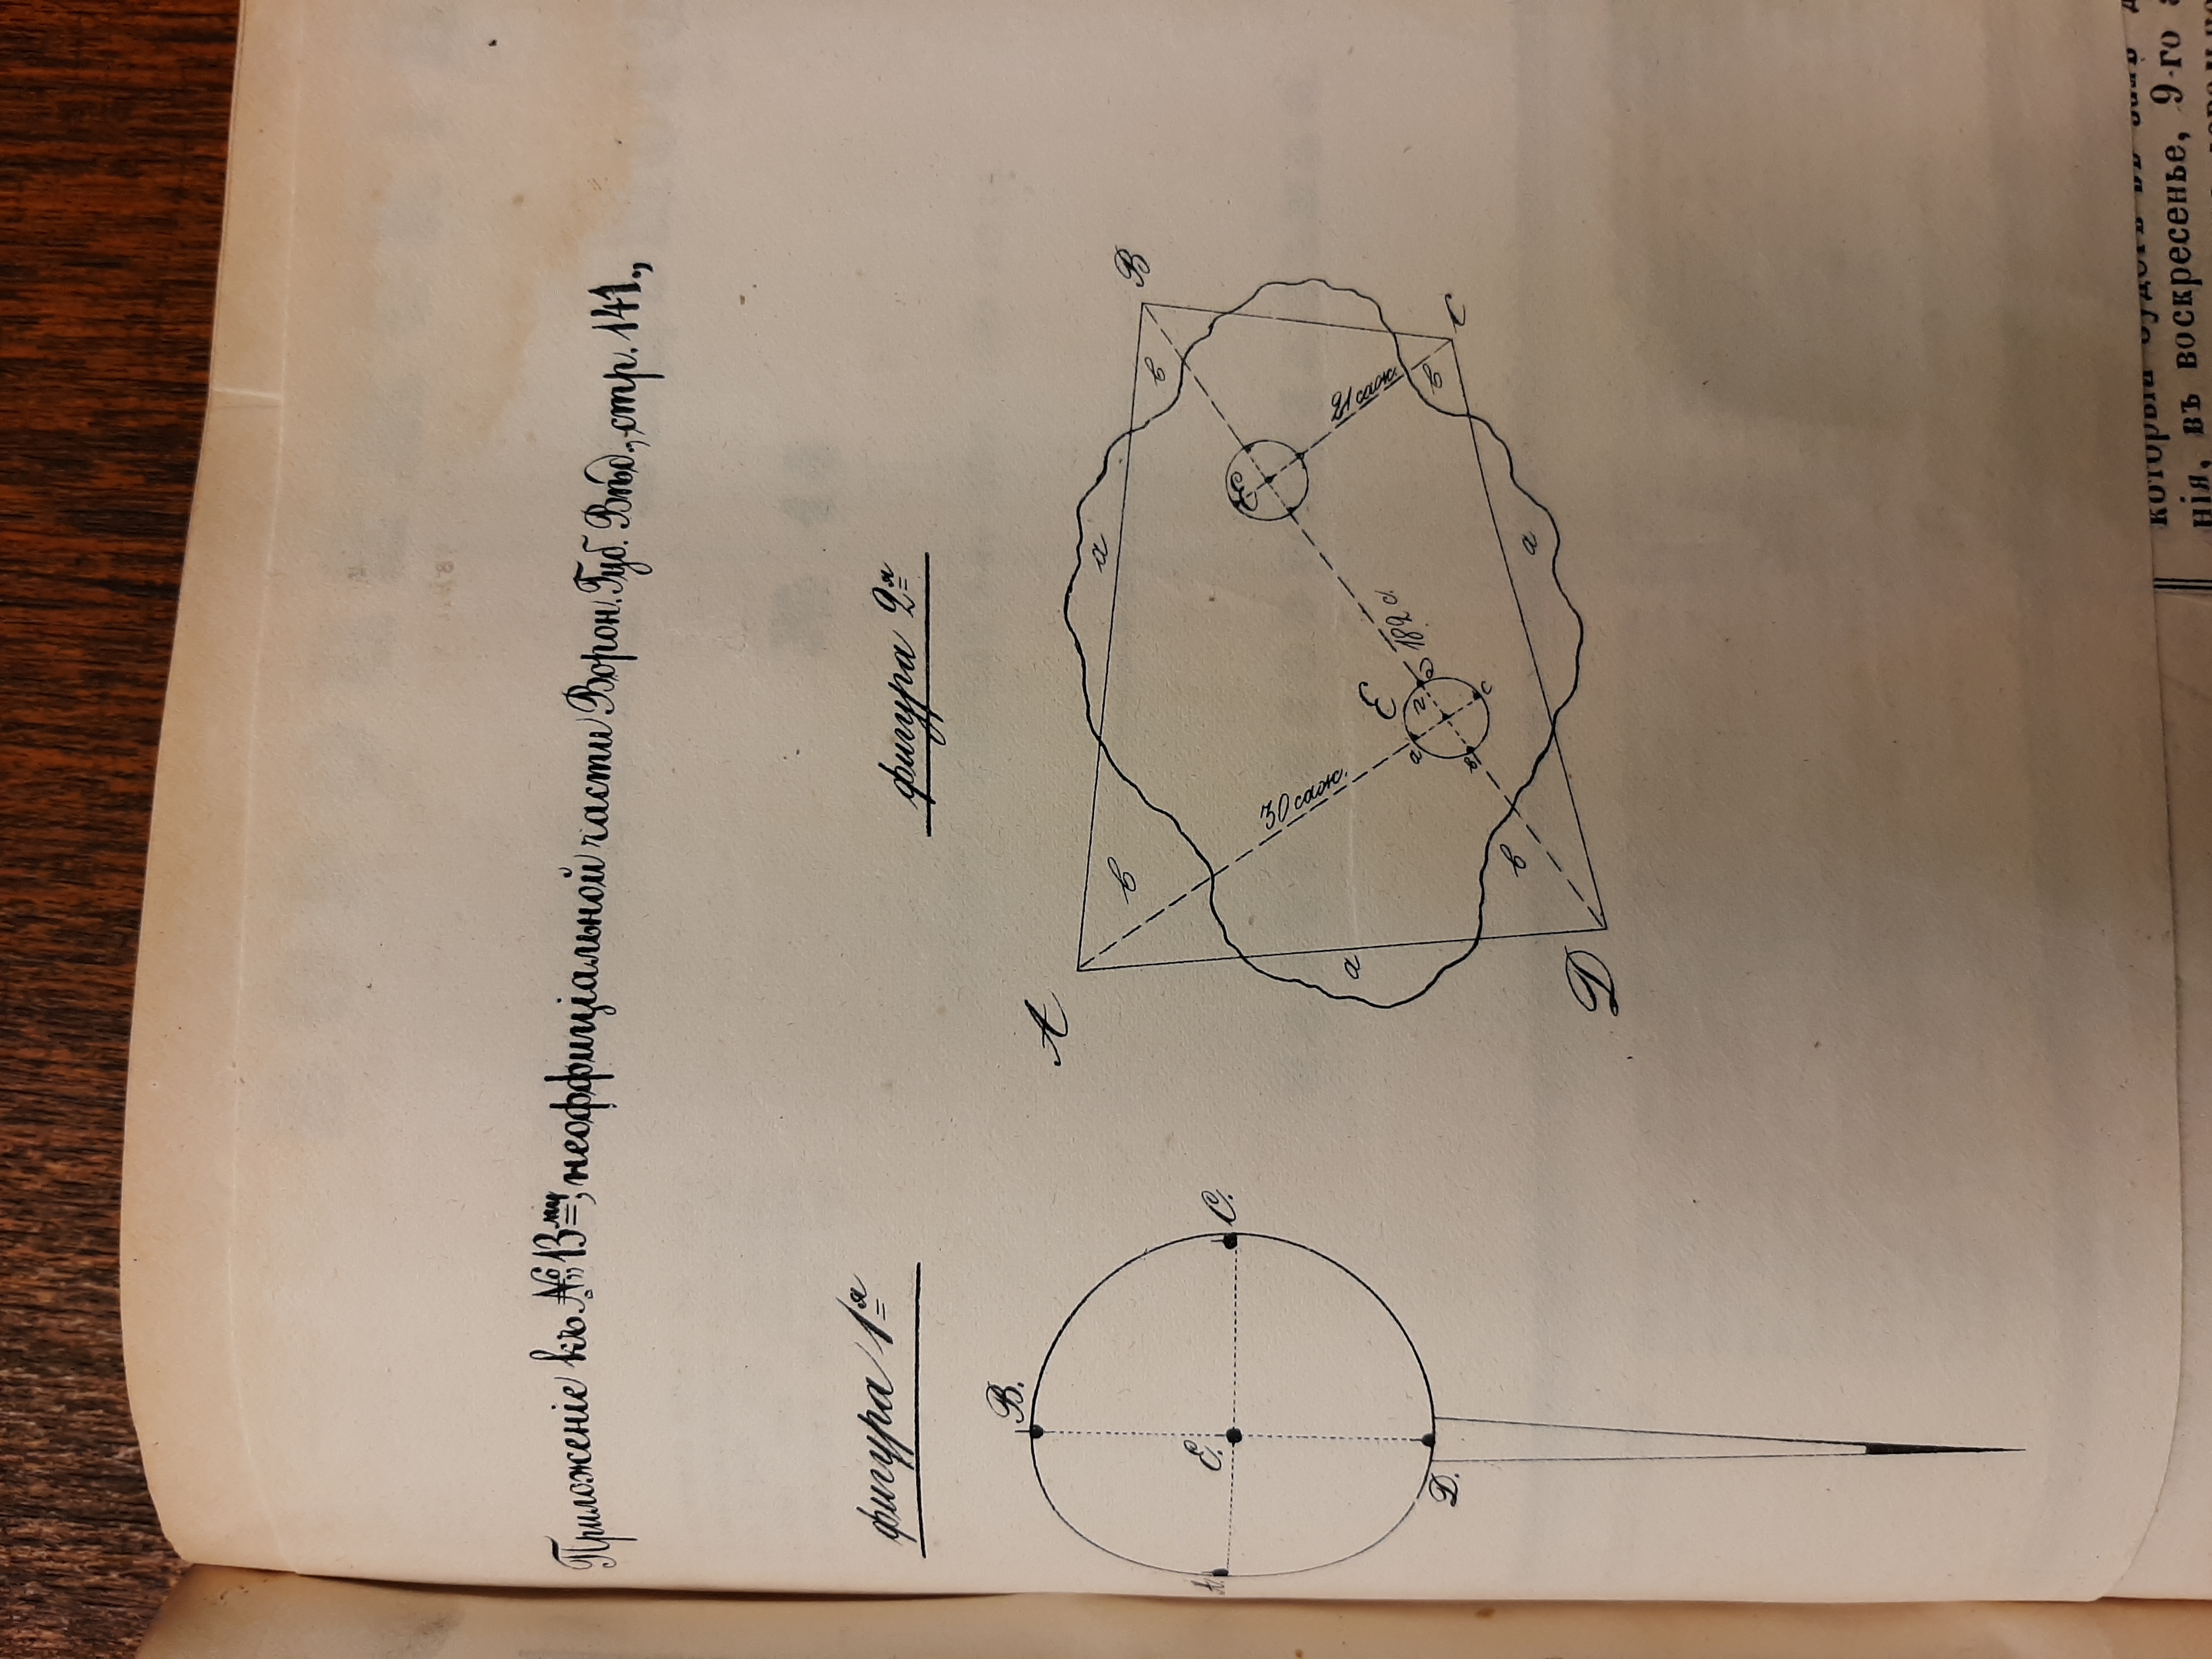 Приложеніе къ № 13му, неоффиціальной части Ворон. Губ. Вѣд., стр. 141.,
фигура 1я
фигура 2я
B.
A.
E.
C.
D.
A
в
a
B
в
E
30 саж.
21 саж.
a
E
a
г
182 с.
в
C
c
в
a
D
который будетъ въ
нія, въ воскресенье, 9-го